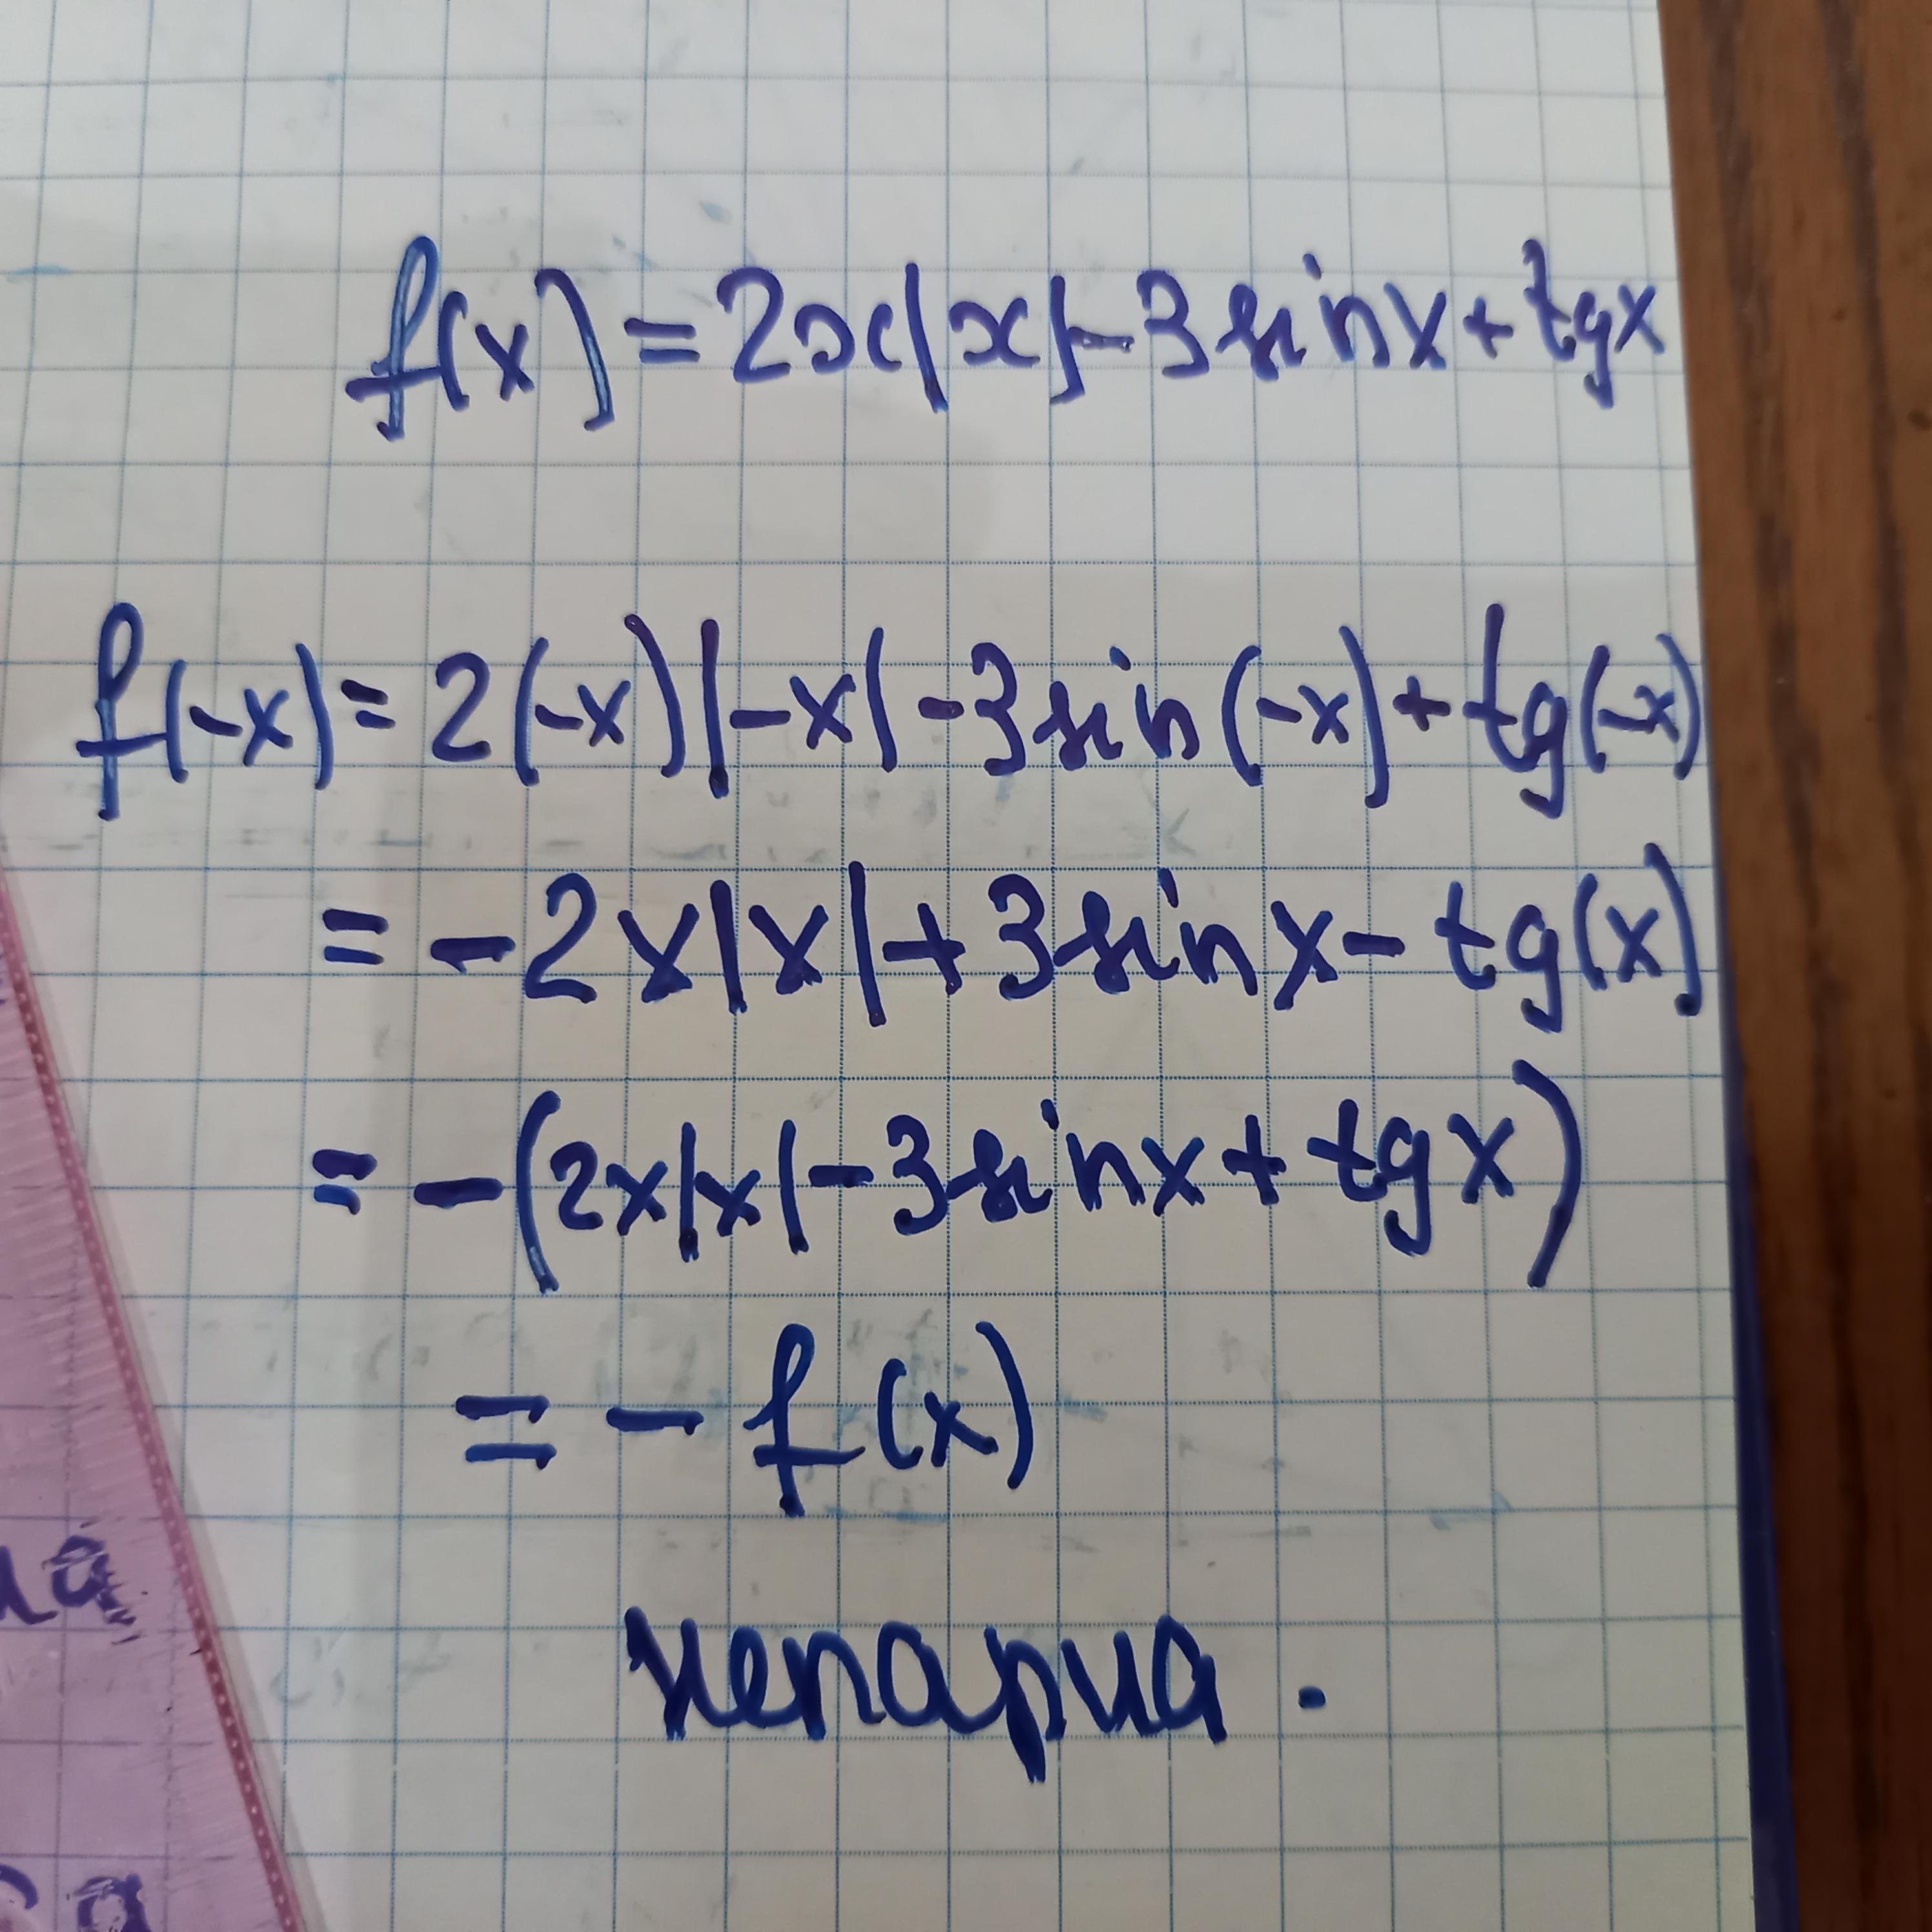 f(x) = 2x|x| - 3 sin x + tg x
f(-x) = 2(-x)|-x| - 3 sin(-x) + tg(-x)
= - 2x|x| + 3 sin x - tg(x)
= - (2x|x| - 3 sin x + tg x)
= - f(x)
непарна.